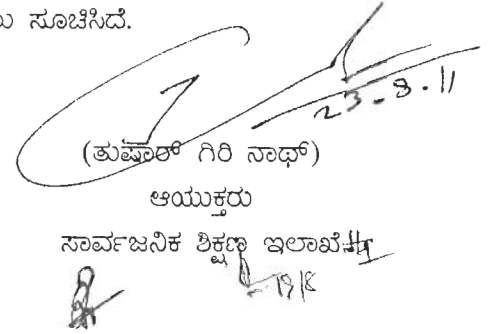 ಸೂಚಿಸಿದೆ.
23-8-11
(ತುಷಾರ್ ಗಿರಿ ನಾಥ್)
ಆಯುಕ್ತರು
ಸಾರ್ವಜನಿಕ ಶಿಕ್ಷಣ ಇಲಾಖೆ
19/8